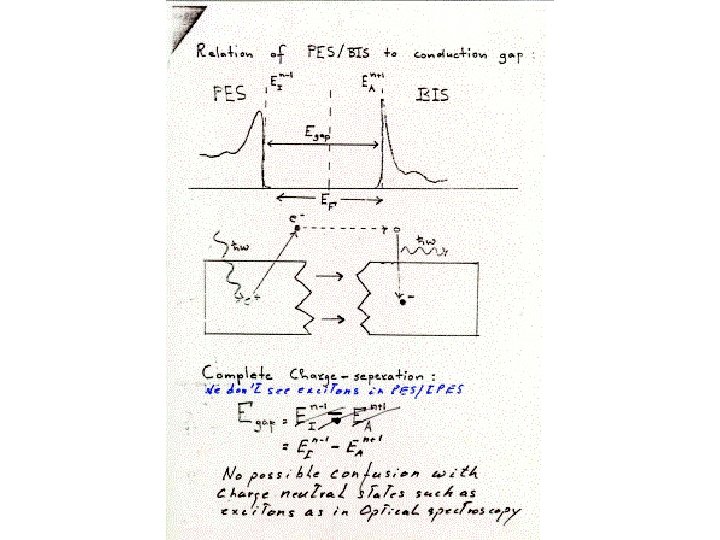 Relation of PES/BIS to conduction gap :
E_I^{n-1} E_A^{n+1}
PES BIS
E_gap
E_F
e-
ħω ħω
Complete Charge-seperation :
We don't see excitons in PES/IPES
E_gap = E_I^{n-1} - E_A^{n+1}
= E_I^{n-1} - E_A^{n+1}
No possible confusion with
charge neutral states such as
excitons as in Optical spectroscopy